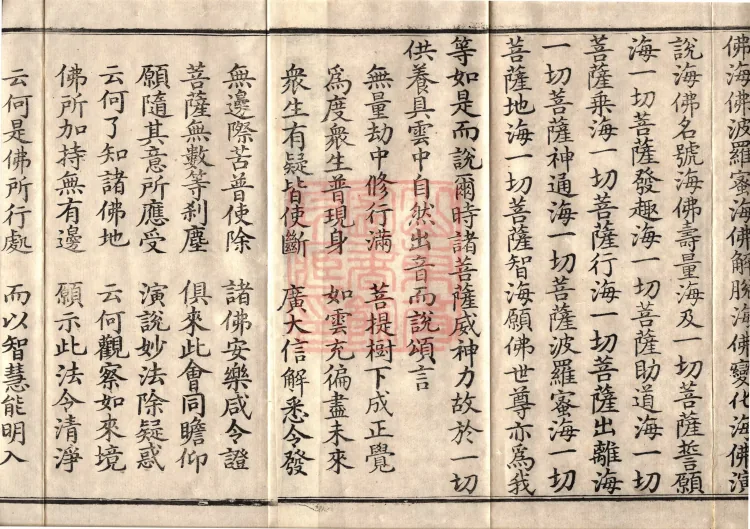 佛海佛波羅蜜海佛解脫海佛變化海佛演
說海佛名號海佛壽量海及一切菩薩誓願
海一切菩薩發趣海一切菩薩助道海一切
菩薩乘海一切菩薩行海一切菩薩出離海
一切菩薩神通海一切菩薩波羅蜜海一切
菩薩地海一切菩薩智海願佛世尊亦為我
等如是而說爾時諸菩薩威神力故於一切
供養具雲中自然出音而說頌言
無量劫中修行滿 菩提樹下成正覺
為度眾生普現身 如雲充徧盡未來
眾生有疑皆使斷 廣大信解悉令發
無邊際苦普使除 諸佛安樂咸令證
菩薩無數等剎塵 俱來此會同瞻仰
願隨其意所應受 演說妙法除疑惑
云何了知諸佛地 云何觀察如來境
佛所加持無有邊 願示此法令清淨
云何是佛所行處 而以智慧能明入